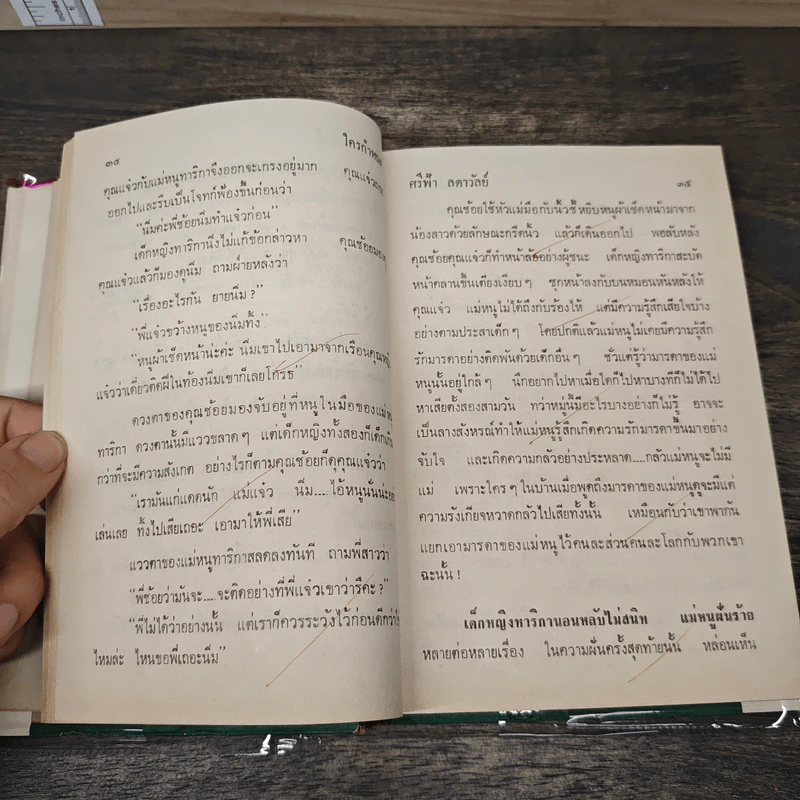 inches
๓๔
ใครกำหนด
คุณแจ๋วกับแม่หนูทาริกาจึงออกจะเกรงอยู่มาก
คุณแจ๋ว
ออกไปและรีบเป็นโจทก์ฟ้องขึ้นก่อนว่า
“นึมค่ะพี่ช้อยนึมทำแจ๋วก่อน”
เด็กหญิงทาริกานิ่งไม่แก้ข้อกล่าวหา
คุณช้อยมอง
คุณแจ๋วแล้วก็มองดูนึม ถามฝ่ายหลังว่า
“เรื่องอะไรกัน ยายนึม ?”
“พี่แจ๋วขว้างหนูของนึมทิ้ง”
“หนูผ้าเช็ดหน้าน่ะค่ะ นึมเขาไปเอามาจากเรือนคุณ
แจ๋วว่าเดี๋ยวติดผีในท้องนึมเขาก็เลยโกรธ”
ดวงตาของคุณช้อยมองจับอยู่ที่หนูในมือของแม่หนู
ทาริกา ดวงตานั้นมีแววขลาด ๆ แต่เด็กหญิงทั้งสองก็เด็ก
กว่าที่จะมีความสังเกต อย่างไรก็ตามคุณช้อยก็ดุคุณแจ๋วว่า
“เรามันแก่แดดนัก แม่แจ๋ว นึม.... ไอ้หนูนั่นน่ะ
เล่นเลย ทิ้งไปเสียเถอะ เอามาให้พี่เสีย”
แววตาของแม่หนูทาริกาสลดลงทันที ถามพี่สาวว่า
“พี่ช้อยว่ามันจะ....จะติดอย่างที่พี่แจ๋วเขาว่ารึคะ ?”
“พี่ไม่ได้ว่าอย่างนั้น แต่เราก็ควรระวังไว้ก่อนดีกว่า
ไหมล่ะ ไหนขอพี่เถอะนึม”
ศรีฟ้า ลดาวัลย์
๓๕
คุณช้อยใช้หัวแม่มือกับนิ้วชี้ หยิบหนูผ้าเช็ดหน้ามาจาก
น้องสาวด้วยลักษณะกรีดนิ้ว แล้วก็เดินออกไป พอลับหลัง
คุณช้อยคุณแจ๋วก็ทำหน้าล้ออย่างผู้ชนะ เด็กหญิงทาริกาสะบัด
หน้าคลานขึ้นเตียงเงียบ ๆ ซุกหน้าลงกับบนหมอนหันหลังให้
คุณแจ๋ว แม่หนูไม่ได้ถึงกับร้องไห้ แต่มีความรู้สึกเสียใจบ้าง
อย่างตามประสาเด็ก ๆ โดยปกติแล้วแม่หนูไม่เคยมีความรู้สึก
รักมารดาอย่างติดพันด้วยเด็กอื่น ๆ ชั่วแต่รู้ว่ามารดาของแม่
หนูนั้นอยู่ใกล้ ๆ นึกอยากไปหาเมื่อใดก็ไปหาบางทีก็ไม่ได้ไป
หาเสียตั้งสองสามวัน ทว่าหมู่นี้มีอะไรบางอย่างก็ไม่รู้ อาจจะ
เป็นลางสังหรณ์ทำให้แม่หนูรู้สึกเกิดความรักมารดาขึ้นมาอย่าง
จับใจ และเกิดความกลัวอย่างประหลาด....กลัวแม่หนูจะไม่มี
แม่ เพราะใคร ๆ ในบ้านเมื่อพูดถึงมารดาของแม่หนูดูจะมีแต่
ความรังเกียจหวาดกลัวไปเสียทั้งนั้น เหมือนกับว่าเขาพากัน
แยกเอามารดาของแม่หนูไว้คนละส่วนคนละโลกกับพวกเขา
ฉะนั้น !
เด็กหญิงทาริกานอนหลับไม่สนิท แม่หนูฝันร้าย
หลายต่อหลายเรื่อง ในความฝันครั้งสุดท้ายนั้น หล่อนเห็น